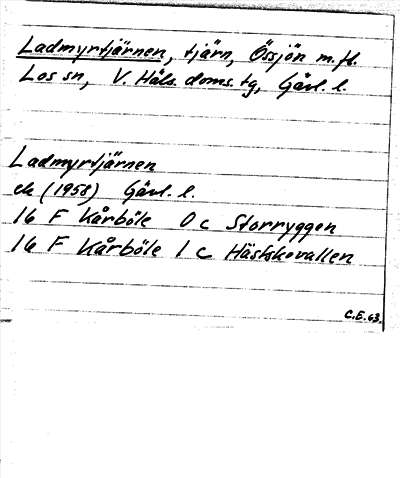 Ladmyrtjärnen, tjärn, Össjön m.fl.
Los sn, V. Häls. doms. tg, Gävl. l.
Ladmyrtjärnen
ek (1958) Gävl. l.
16 F Kårböle 0 c Storryggen
16 F Kårböle 1 c Hästskovallen
C.E. 63.